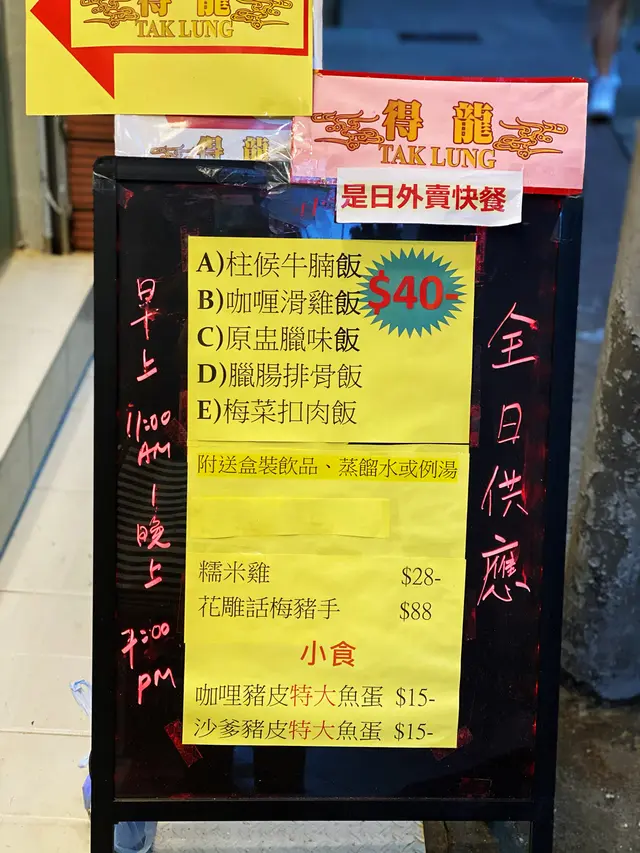 得龍
TAK LUNG
得龍
得龍
TAK LUNG
是日外賣快餐
A)柱候牛腩飯
B)咖喱滑雞飯
C)原盅臘味飯
D)臘腸排骨飯
E)梅菜扣肉飯
$40-
附送盒裝飲品、蒸餾水或例湯
糯米雞 $28-
花雕話梅豬手 $88
小食
咖哩豬皮特大魚蛋 $15-
沙爹豬皮特大魚蛋 $15-
早上
11:00
AM
|
晚上
7:00
PM
全日供應